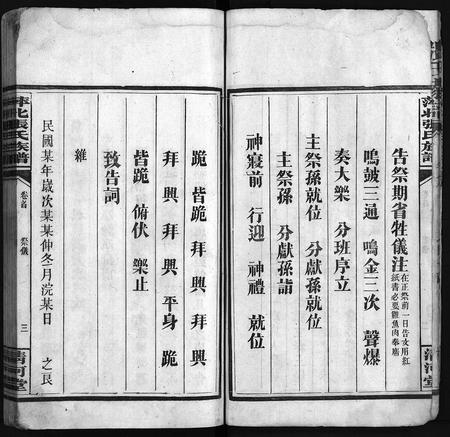 萍北張氏族譜
告祭期省牲儀注 在正祭前一日告文用紅紙書必要雞魚肉奉廟
鳴鼓三通 鳴金三次 聲爆
奏大樂 分班序立
主祭孫就位 分獻孫就位
主祭孫 分獻孫詣
神寢前 行迎 神禮 就位
清河堂
跪 皆跪 拜 興 拜 興
拜 興 拜 興 平身 跪
皆跪 俯伏 樂止
致告詞
維
民國某年歲次某某仲冬月浣某日 之良
萍北張氏族譜
卷首 祭儀
三
清河堂